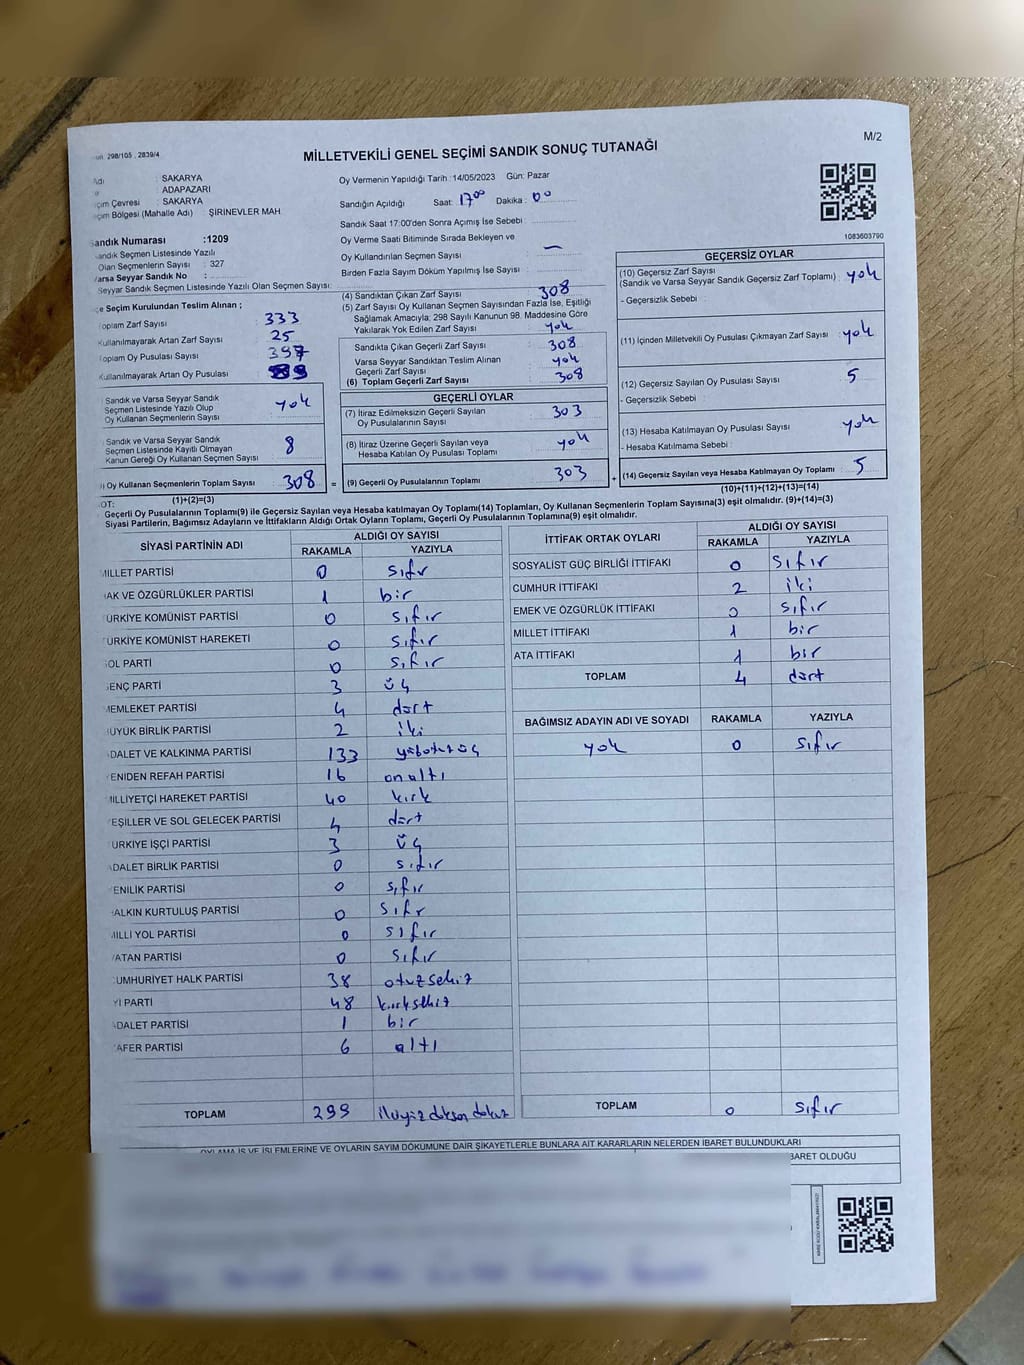 298/105 . 2839/4
M/2
MİLLETVEKİLİ GENEL SEÇİMİ SANDIK SONUÇ TUTANAĞI
: SAKARYA
: ADAPAZARI
çim Çevresi : SAKARYA
çim Bölgesi (Mahalle Adı) ŞİRİNEVLER MAH
Oy Vermenin Yapıldığı Tarih :14/05/2023 Gün: Pazar
Sandığın Açıldığı Saat: 17 00 Dakika : 00
Sandık Saat 17:00'den Sonra Açımış İse Sebebi :
Oy Verme Saati Bitiminde Sırada Bekleyen ve
Oy Kullandırılan Seçmen Sayısı : —
Birden Fazla Sayım Döküm Yapılmış İse Sayısı :
1083603790
andık Numarası :1209
andık Seçmen Listesinde Yazılı
Olan Seçmenlerin Sayısı : 327
Varsa Seyyar Sandık No :
Seyyar Sandık Seçmen Listesinde Yazılı Olan Seçmen Sayısı:
e Seçim Kurulundan Teslim Alınan ;
oplam Zarf Sayısı : 333
Kullanılmayarak Artan Zarf Sayısı : 25
oplam Oy Pusulası Sayısı : 397
Kullanılmayarak Artan Oy Pusulası :
Sandık ve Varsa Seyyar Sandık
Seçmen Listesinde Yazılı Olup
Oy Kullanan Seçmenlerin Sayısı : yok
Sandık ve Varsa Seyyar Sandık
Seçmen Listesinde Kayıtlı Olmayan
Kanun Gereği Oy Kullanan Seçmen Sayısı : 8
Oy Kullanan Seçmenlerin Toplam Sayısı : 308
(1)+(2)=(3)
(4) Sandıktan Çıkan Zarf Sayısı 308
(5) Zarf Sayısı Oy Kullanan Seçmen Sayısından Fazla İse, Eşitliği
Sağlamak Amacıyla; 298 Sayılı Kanunun 98. Maddesine Göre
Yakılarak Yok Edilen Zarf Sayısı : yok
Sandıkta Çıkan Geçerli Zarf Sayısı : 308
Varsa Seyyar Sandıktan Teslim Alınan
Geçerli Zarf Sayısı : yok
(6) Toplam Geçerli Zarf Sayısı : 308
GEÇERLİ OYLAR
(7) İtiraz Edilmeksizin Geçerli Sayılan
Oy Pusulalarının Sayısı : 303
(8) İtiraz Üzerine Geçerli Sayılan veya
Hesaba Katılan Oy Pusulası Toplamı : yok
= (9) Geçerli Oy Pusulalarının Toplamı : 303 +
GEÇERSİZ OYLAR
(10) Geçersiz Zarf Sayısı
(Sandık ve Varsa Seyyar Sandık Geçersiz Zarf Toplamı) : yok
- Geçersizlik Sebebi :
(11) İçinden Milletvekili Oy Pusulası Çıkmayan Zarf Sayısı : yok
(12) Geçersiz Sayılan Oy Pusulası Sayısı : 5
- Geçersizlik Sebebi :
(13) Hesaba Katılmayan Oy Pusulası Sayısı : yok
- Hesaba Katılmama Sebebi :
(14) Geçersiz Sayılan veya Hesaba Katılmayan Oy Toplamı : 5
(10)+(11)+(12)+(13)=(14)
OT:
Geçerli Oy Pusulalarının Toplamı(9) ile Geçersiz Sayılan veya Hesaba katılmayan Oy Toplamı(14) Toplamları, Oy Kullanan Seçmenlerin Toplam Sayısına(3) eşit olmalıdır. (9)+(14)=(3)
Siyasi Partilerin, Bağımsız Adayların ve İttifakların Aldığı Ortak Oyların Toplamı, Geçerli Oy Pusulalarının Toplamına(9) eşit olmalıdır.
SİYASİ PARTİNİN ADI ALDIĞI OY SAYISI
RAKAMLA YAZIYLA
MİLLET PARTİSİ 0 sıfr
AK VE ÖZGÜRLÜKLER PARTİSİ 1 bir
ÜRKİYE KOMÜNİST PARTİSİ 0 sıfır
ÜRKİYE KOMÜNİST HAREKETİ 0 sıfır
OL PARTİ 0 sıfır
ENÇ PARTİ 3 üç
MEMLEKET PARTİSİ 4 dört
ÜYÜK BİRLİK PARTİSİ 2 iki
DALET VE KALKINMA PARTİSİ 133 yüzotuzüç
ENİDEN REFAH PARTİSİ 16 onaltı
MİLLİYETÇİ HAREKET PARTİSİ 40 kırk
EŞİLLER VE SOL GELECEK PARTİSİ 4 dört
ÜRKİYE İŞÇİ PARTİSİ 3 üç
DALET BİRLİK PARTİSİ 0 sıfır
ENİLİK PARTİSİ 0 sıfır
ALKIN KURTULUŞ PARTİSİ 0 sıfr
MİLLİ YOL PARTİSİ 0 sıfır
ATAN PARTİSİ 0 sıfır
UMHURİYET HALK PARTİSİ 38 otuzsekiz
Yİ PARTİ 48 kırksekiz
DALET PARTİSİ 1 bir
AFER PARTİSİ 6 altı
TOPLAM 299 ikiyüzdoksandokuz
İTTİFAK ORTAK OYLARI ALDIĞI OY SAYISI
RAKAMLA YAZIYLA
SOSYALİST GÜÇ BİRLİĞİ İTTİFAKI 0 sıfır
CUMHUR İTTİFAKI 2 iki
EMEK VE ÖZGÜRLÜK İTTİFAKI 0 sıfır
MİLLET İTTİFAKI 1 bir
ATA İTTİFAKI 1 bir
TOPLAM 4 dört
BAĞIMSIZ ADAYIN ADI VE SOYADI RAKAMLA YAZIYLA
yok 0 sıfır
TOPLAM 0 sıfır
OYLAMA İŞ VE İŞLEMLERİNE VE OYLARIN SAYIM DÖKÜMÜNE DAİR ŞİKAYETLERLE BUNLARA AİT KARARLARIN NELERDEN İBARET BULUNDUKLARI
BARET OLDUĞU